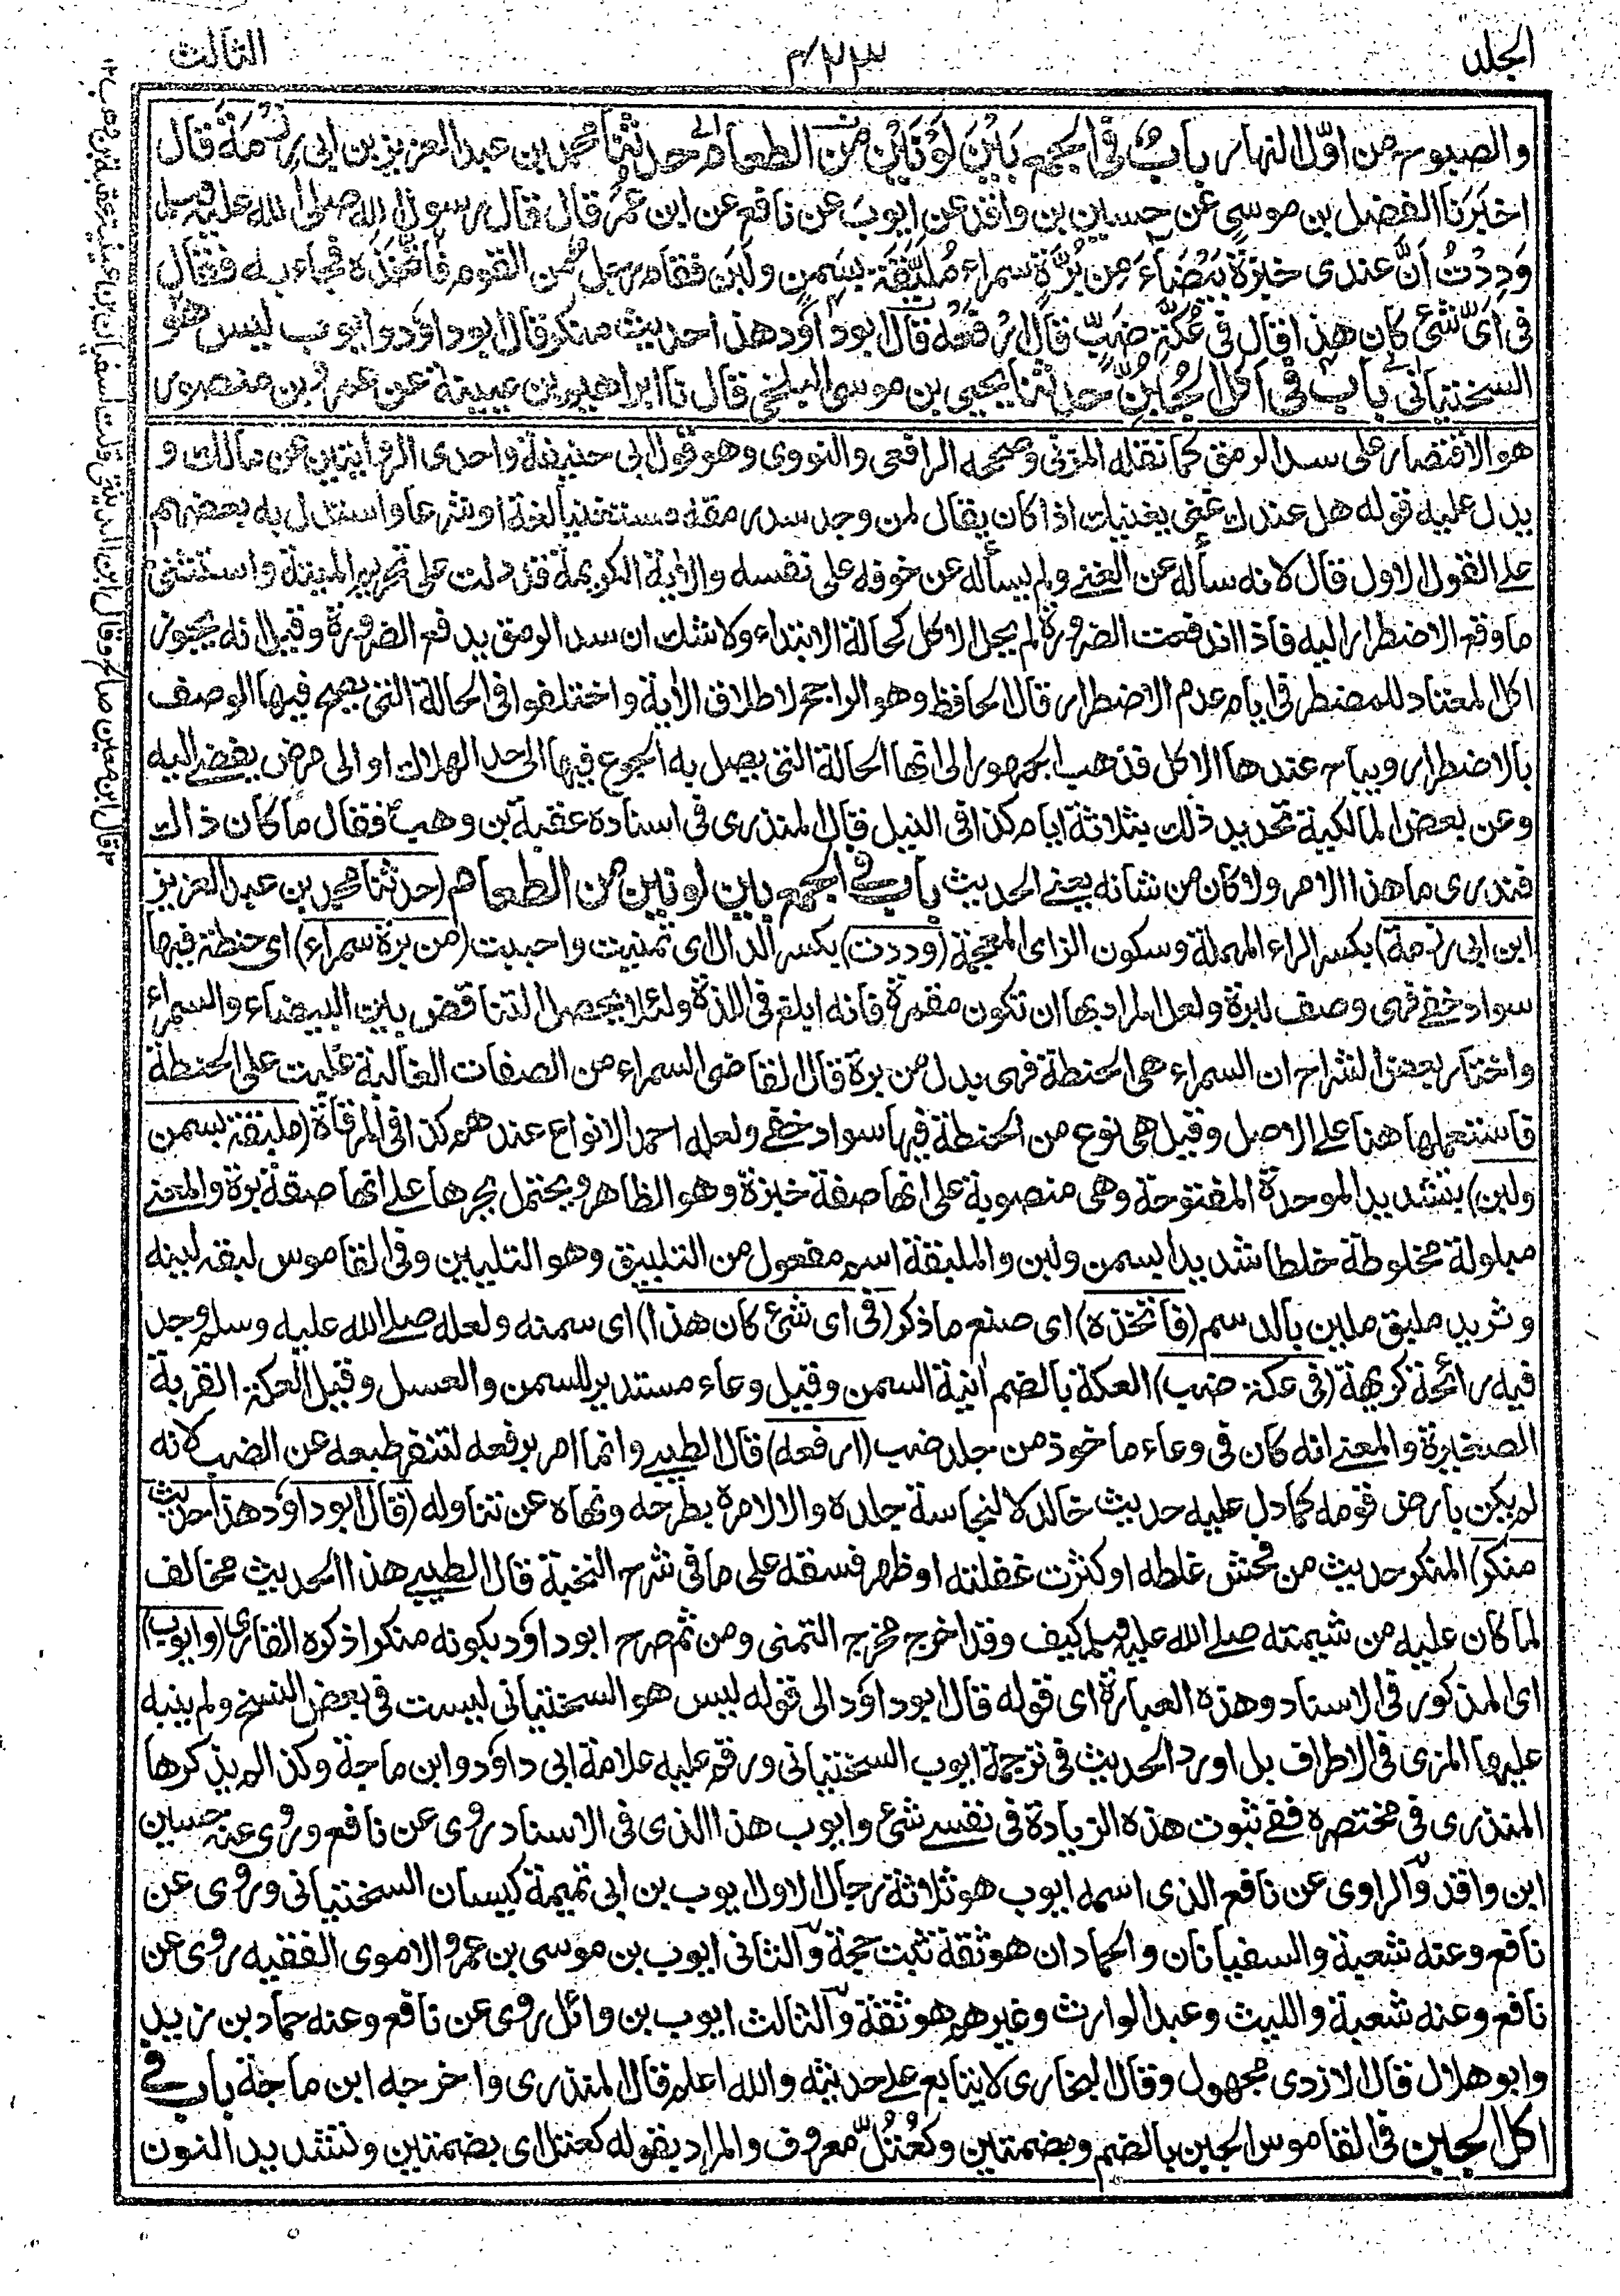 الجلد
٤٢٣
الثالث
والصبوح من اول النهار باب في الجمع بين لونين من الطعام حدثنا محمد بن عبد العزيز بن ابى رزمة قال
اخبرنا الفضل بن موسى عن حسين بن واقد عن ايوب عن نافع عن ابن عمر قال قال رسول الله صلى الله عليه وسلم
وددت ان عندى خبزة بيضاء من برة سمراء ملبقة بسمن ولبن فقام رجل من القوم فاتخذه فجاء به فقال
في اى شئ كان هذا قال في عكة ضب قال ارفعه قال ابو داود هذا حديث منكر قال ابو داود وايوب ليس هو
السختيانى باب في اكل الجبن حدثنا يحيى بن موسى البلخى قال نا ابراهيم بن عيينة عن عمرو بن منصور
هو الاقتصار على سد الرمق كما نقله المزنى وصححه الرافعى والنووى وهو قول ابى حنيفة واحدى الروايتين عن مالك و
يدل عليه قوله هل عندك غنى يغنيك اذا كان يقال لمن وجد سد رمقه مستغنيا لغة او شرعا واستدل به بعضهم
على القول الاول قال لانه سأله عن الغنى ولم يسأله عن خوفه على نفسه والآية الكريمة قد دلت على تحريم الميتة واستثنى
ما وقع الاضطرار اليه فاذا اندفعت الضرورة لم يحل الاكل كحالة الابتداء ولا شك ان سد الرمق يدفع الضرورة وقيل انه يجوز
اكل المعتاد للمضطر في ايام عدم الاضطرار قال الحافظ وهو الراجح لاطلاق الآية واختلفوا في الحالة التى يصح فيها الوصف
بالاضطرار ويباح عندها الاكل فذهب الجمهور الى انها الحالة التى يصل به الجوع فيها الى حد الهلاك او الى مرض يفضى اليه
وعن بعض المالكية تحديد ذلك بثلاثة ايام كذا في النيل قال المنذرى في اسناده عقبة بن وهب فقال ما كان ذاك
فندرى ما هذا الامر ولا كان من شانه يعنى الحديث باب في الجمع بين لونين من الطعام (حدثنا محمد بن عبد العزيز
ابن ابى رزمة) بكسر الراء المهملة وسكون الزاى المعجمة (وددت) بكسر الدال اى تمنيت واحببت (من برة سمراء) اى حنطة فيها
سواد خفى فهى وصف لبرة ولعل المراد بها ان تكون مقمرة فانه ابلغ في اللذة ولئلا يحصل التناقض بين البيضاء والسمراء
واختار بعض الشراح ان السمراء هى الحنطة فهى بدل من برة قال القاضى السمراء من الصفات الغالبة غلبت على الحنطة
فاستعملها هنا على الاصل وقيل هى نوع من الحنطة فيها سواد خفى ولعله احمد الانواع عندهم كذا في المرقاة (ملبقة بسمن
ولبن) بتشديد الموحدة المفتوحة وهى منصوبة على انها صفة خبزة وهو الظاهر ويحتمل بجرها على انها صفة برة والمعنى
مبلولة مخلوطة خلطا شديدا بسمن ولبن والملبقة اسم مفعول من التلبيق وهو التليين وفي القاموس لبقه لينه
وثريد ملبق ملين بالدسم (فاتخذه) اى صنع ما ذكر (في اى شئ كان هذا) اى سمنه ولعله صلى الله عليه وسلم وجد
فيه رائحة كريهة (في عكة ضب) العكة بالضم آنية السمن وقيل وعاء مستدير للسمن والعسل وقيل العكة القربة
الصغيرة والمعنى انه كان في وعاء ماخوذ من جلد ضب (ارفعه) قال الطيبى وانما امر برفعه لتنفر طبعه عن الضب لانه
لم يكن بارض قومه كما دل عليه حديث خالد لا لنجاسة جلده والا لامره بطرحه ونهاه عن تناوله (قال ابو داود هذا حديث
منكر) المنكر حديث من فحش غلطه او كثرت غفلته او ظهر فسقه على ما في شرح النخبة قال الطيبى هذا الحديث مخالف
لما كان عليه من شيمته صلى الله عليه وسلم كيف وقد اخرج مخرج التمنى ومن ثم صرح ابو داود بكونه منكرا ذكره القارى (وايوب)
اى المذكور في الاسناد وهذه العبارة اى قوله قال ابو داود الى قوله ليس هو السختيانى ليست في بعض النسخ ولم ينبه
عليها المزى في الاطراف بل اورد الحديث في ترجمة ايوب السختيانى ورقم عليه علامة ابى داود وابن ماجة وكذا لم يذكرها
المنذرى في مختصره ففى ثبوت هذه الزيادة في نفسى شئ وايوب هذا الذى في الاسناد روى عن نافع وروى عنه حسين
ابن واقد والراوى عن نافع الذى اسمه ايوب هو ثلاثة رجال الاول ايوب بن ابى تميمة كيسان السختيانى وروى عن
نافع وعنه شعبة والسفيانان والحمادان هو ثقة ثبت حجة والثانى ايوب بن موسى بن عمرو الاموى الفقيه روى عن
نافع وعنه شعبة والليث وعبد الوارث وغيرهم هو ثقة والثالث ايوب بن وائل روى عن نافع وعنه حماد بن زيد
وابو هلال قال الازدى مجهول وقال البخارى لا يتابع على حديثه والله اعلم قال المنذرى واخرجه ابن ماجة باب في
اكل الجبن في القاموس الجبن بالضم وبضمتين وكعتل معروف والمراد بقوله كعتل اى بضمتين وتشديد النون